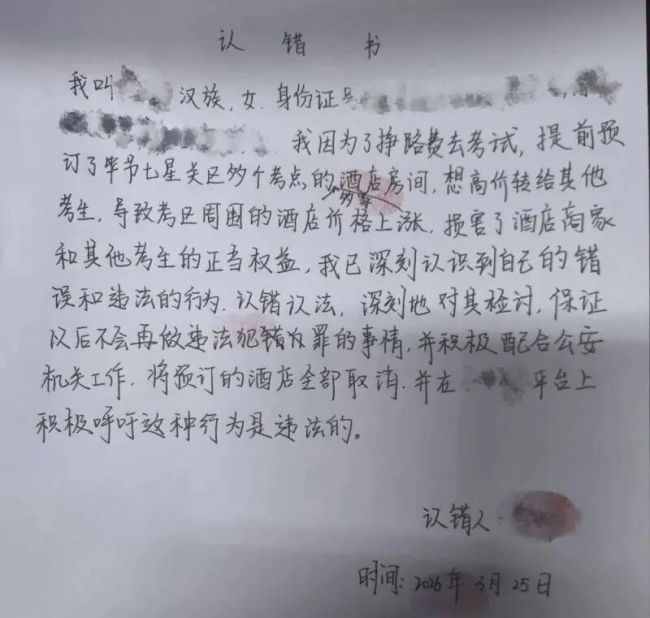 认错书
我叫 汉族,女.身份证号
我因为了挣路费去考试,提前预
订了毕节七星关区多个考点的多家酒店房间,想高价转给其他
考生,导致考区周围的酒店价格上涨,损害了酒店商家
和其他考生的正当权益,我已深刻认识到自己的错
误和违法的行为.认错认法,深刻地对其检讨,保证
以后不会再做违法犯错为罪的事情,并积极配合公安
机关工作.将预订的酒店全部取消.并在 平台上
积极呼吁这种行为是违法的。
认错人
时间:2026年3月25日